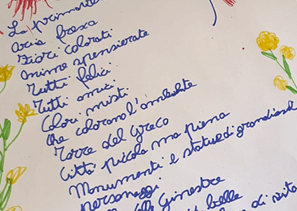 La primavera
aria fresca
Fiori colorati
anime spensierate
Tutti felici
Tutti amici
Colori misti
che colorano l'ambiente
Torre del Greco
Città piccola ma piena
Monumenti e statue di grandiosi
personaggi
delle Ginestre
belle
di